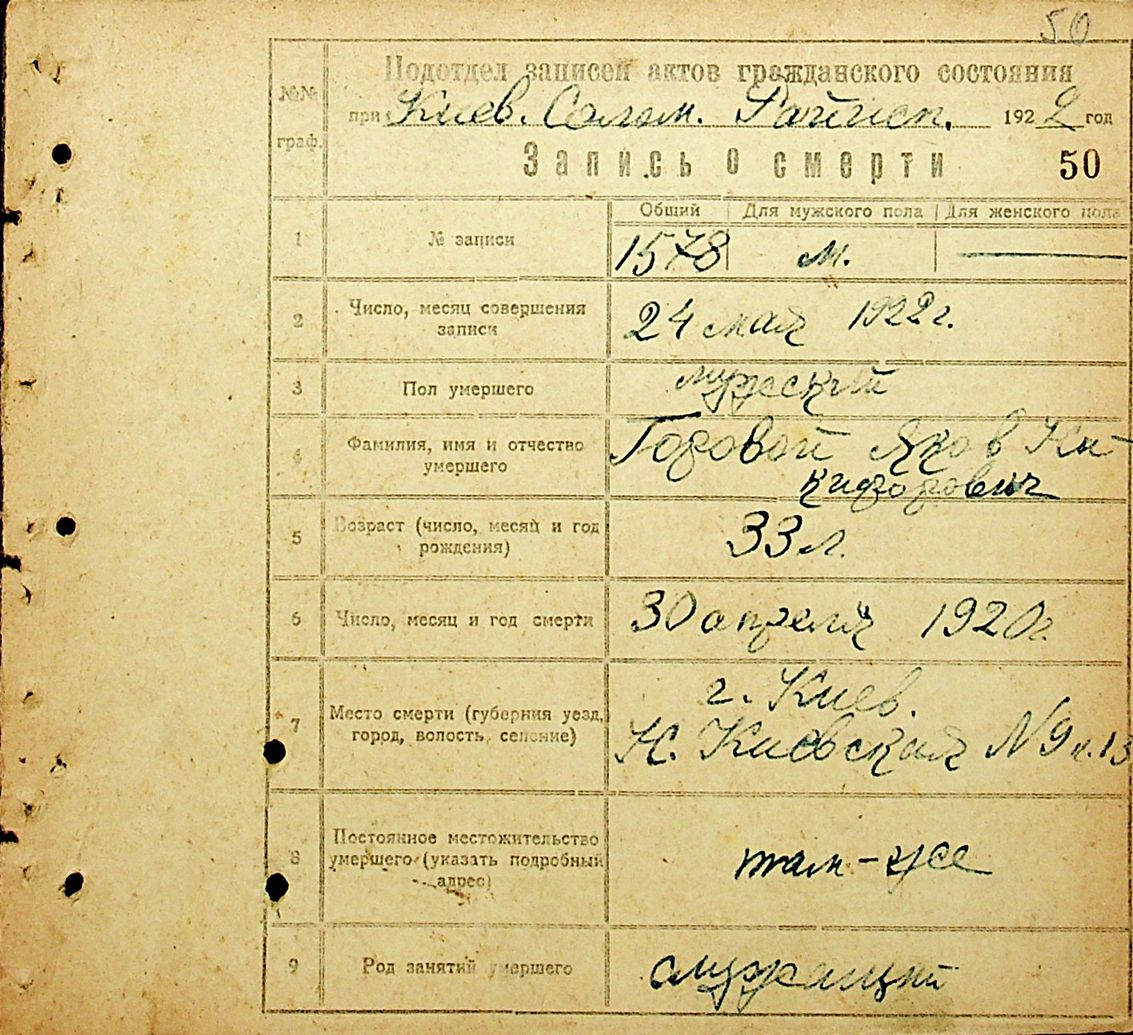 50
№№ граф.
Подотдел записей актов гражданского состояния
при Киев. Солом. Райисп. 1922 год
Запись о смерти 50
Общий | Для мужского пола | Для женского пола
1 № записи 1578 м. —
2 Число, месяц совершения
записи 24 мая 1922 г.
3 Пол умершего мужский
4 Фамилия, имя и отчество
умершего Горовой Яков Ни-
кифорович
5 Возраст (число, месяц и год
рождения) 33 л.
6 Число, месяц и год смерти 30 апреля 1920 г.
7 Место смерти (губерния уезд,
город, волость селение) г. Киев.
Н. Киевская N 9 к. 13
8 Постоянное местожительство
умершего (указать подробный
адрес) там-же
9 Род занятий умершего служащий